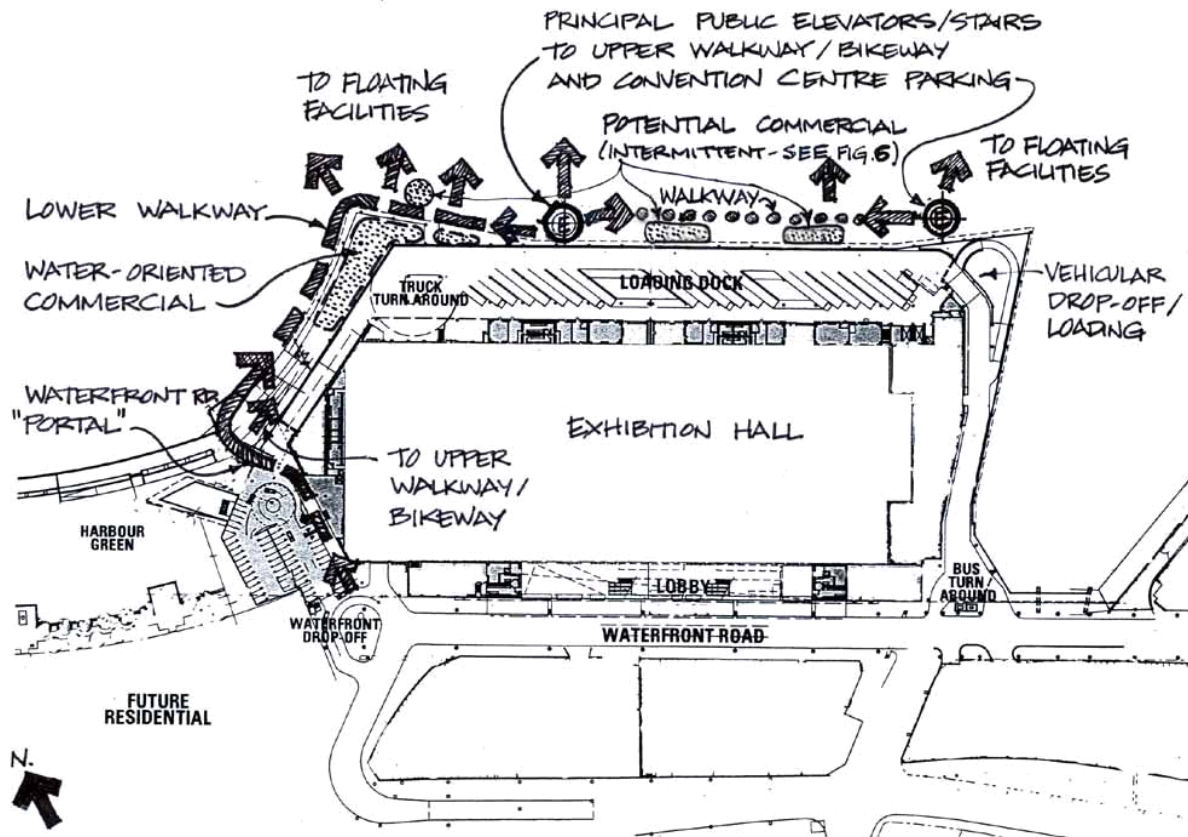 PRINCIPAL PUBLIC ELEVATORS/STAIRS
TO UPPER WALKWAY/BIKEWAY
AND CONVENTION CENTRE PARKING
TO FLOATING
FACILITIES
POTENTIAL COMMERCIAL
(INTERMITTENT-SEE FIG.6)
TO FLOATING
FACILITIES
WALKWAY
LOWER WALKWAY
E
E
WATER-ORIENTED
COMMERCIAL
TRUCK
TURN AROUND
LOADING DOCK
VEHICULAR
DROP-OFF/
LOADING
WATERFRONT RD.
"PORTAL"
EXHIBITION HALL
TO UPPER
WALKWAY/
BIKEWAY
HARBOUR
GREEN
BUS
TURN
AROUND
LOBBY
WATERFRONT
DROP-OFF
WATERFRONT ROAD
FUTURE
RESIDENTIAL
N.